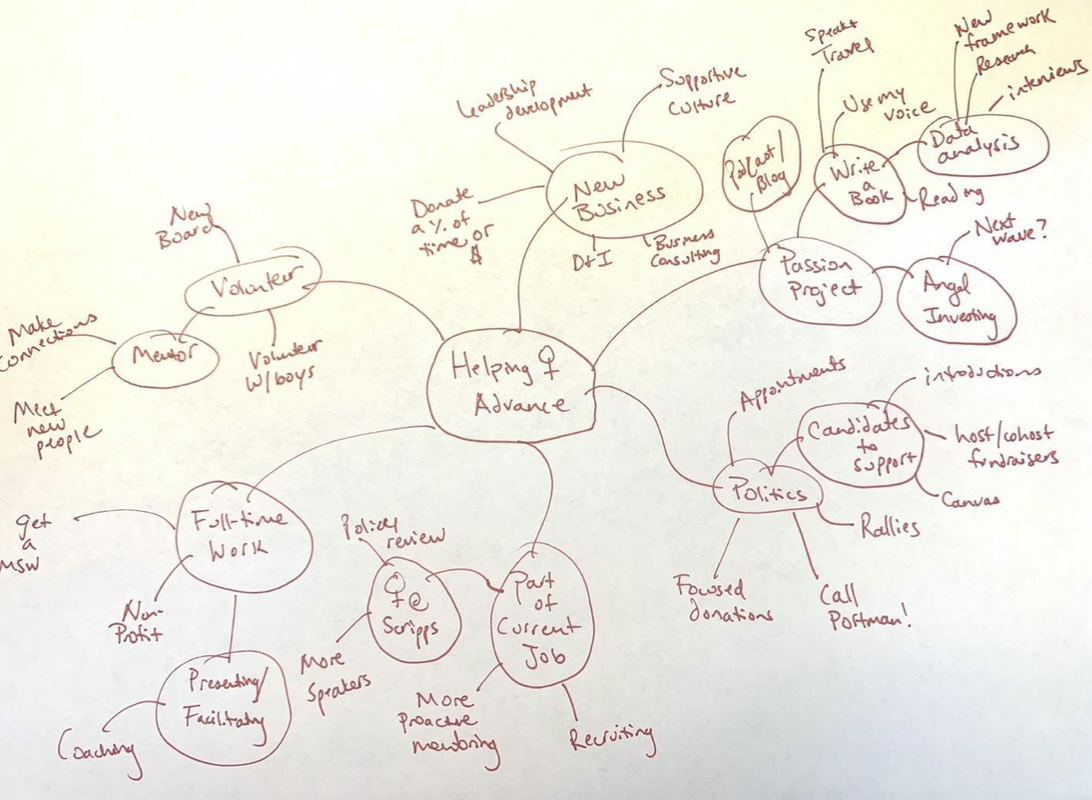 Helping ♀
Advance
New
Business
Leadership
development
Supportive
Culture
Donate
a % of
time or
$
D+I
Business
Consulting
Passion
Project
Podcast/
Blog
Write
a
Book
Speak +
Travel
Use my
voice
Reading
Data
analysis
New
framework
Research
interviews
Angel
Investing
Next
wave?
Politics
Appointments
Candidates
to
support
introductions
host/cohost
fundraisers
Canvas
Rallies
Call
Portman!
Focused
donations
Part
of
Current
Job
♀ @
Scripps
Policy
review
More
Speakers
More
Proactive
mentoring
Recruiting
Full-time
Work
get
a
MSW
Non-
Profit
Presenting/
Facilitating
Coaching
Volunteer
New
Board
Volunteer
w/boys
Mentor
Make
Connections
Meet
new
people